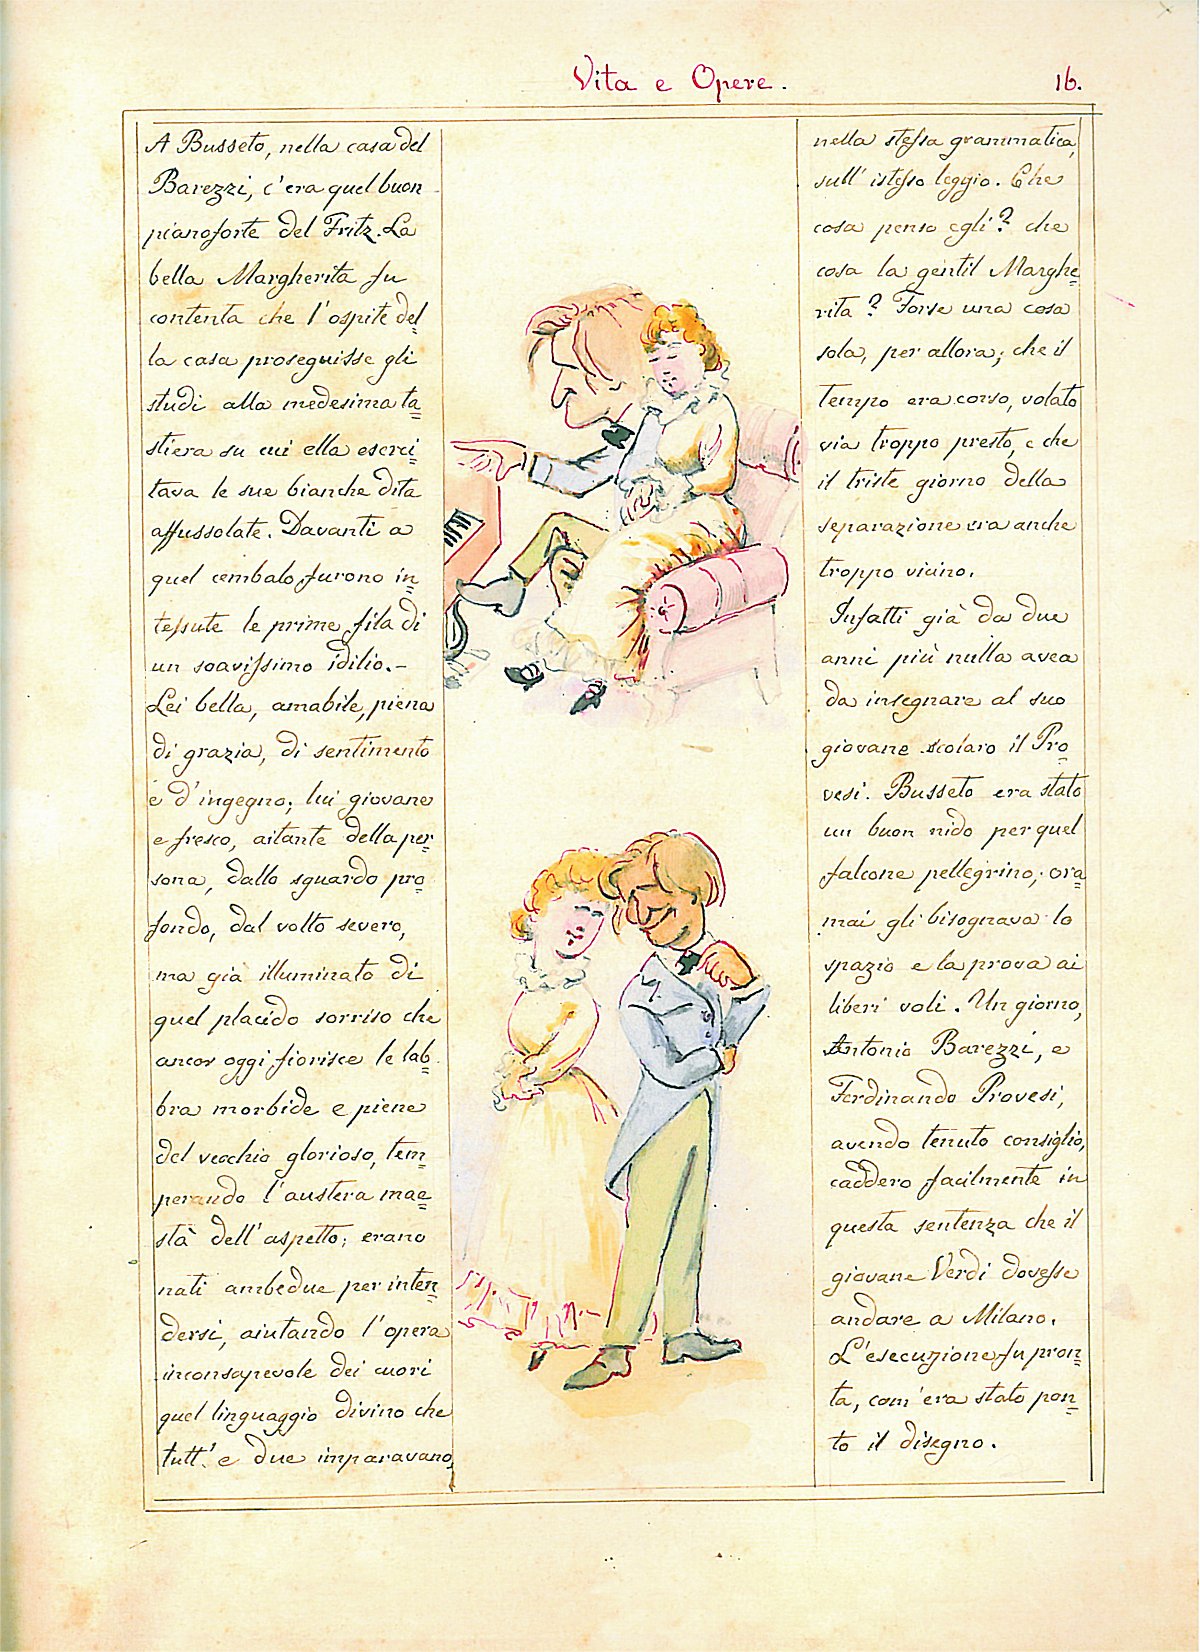 Vita e Opere.
16.
A Busseto, nella casa del
Barezzi, c'era quel buon
pianoforte del Fritz. La
bella Margherita fu
contenta che l'ospite del=
la casa proseguisse gli
studi alla medesima ta=
stiera su cui ella eserci=
tava le sue bianche dita
affussolate. Davanti a
quel cembalo furono in=
tessute le prime fila di
un soavissimo idilio.-
Lei bella, amabile, piena
di grazia, di sentimento
e d'ingegno; lui giovane
e fresco, aitante della per=
sona, dallo sguardo pro=
fondo, dal volto severo,
ma già illuminato di
quel placido sorriso che
ancor oggi fiorisce le lab=
bra morbide e piene
del vecchio glorioso, tem=
perando l'austera mae=
stà dell'aspetto; erano
nati ambedue per inten=
dersi, aiutando l'opera
inconsapevole dei cuori
quel linguaggio divino che
tutt'e due imparavano,
nella stessa grammatica,
sull'istesso leggio. Che
cosa penso egli? che
cosa la gentil Marghe=
rita? Forse una cosa
sola, per allora; che il
tempo era corso, volato
via troppo presto, e che
il triste giorno della
separazione era anche
troppo vicino.
Infatti già da due
anni più nulla avea
da insegnare al suo
giovane scolaro il Pro=
vesi. Busseto era stato
un buon nido per quel
falcone pellegrino; ora=
mai gli bisognava lo
spazio e la prova ai
liberi voli. Un giorno,
Antonio Barezzi, e
Ferdinando Provesi,
avendo tenuto consiglio,
caddero facilmente in
questa sentenza che il
giovane Verdi dovesse
andare a Milano.
L'esecuzione fu pron=
ta, com'era stato pon=
to il disegno.